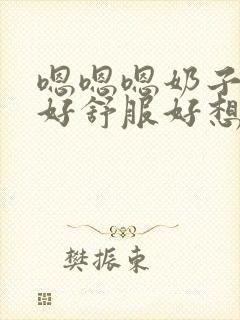 嗯嗯嗯奶子
好舒服好想
樊振东